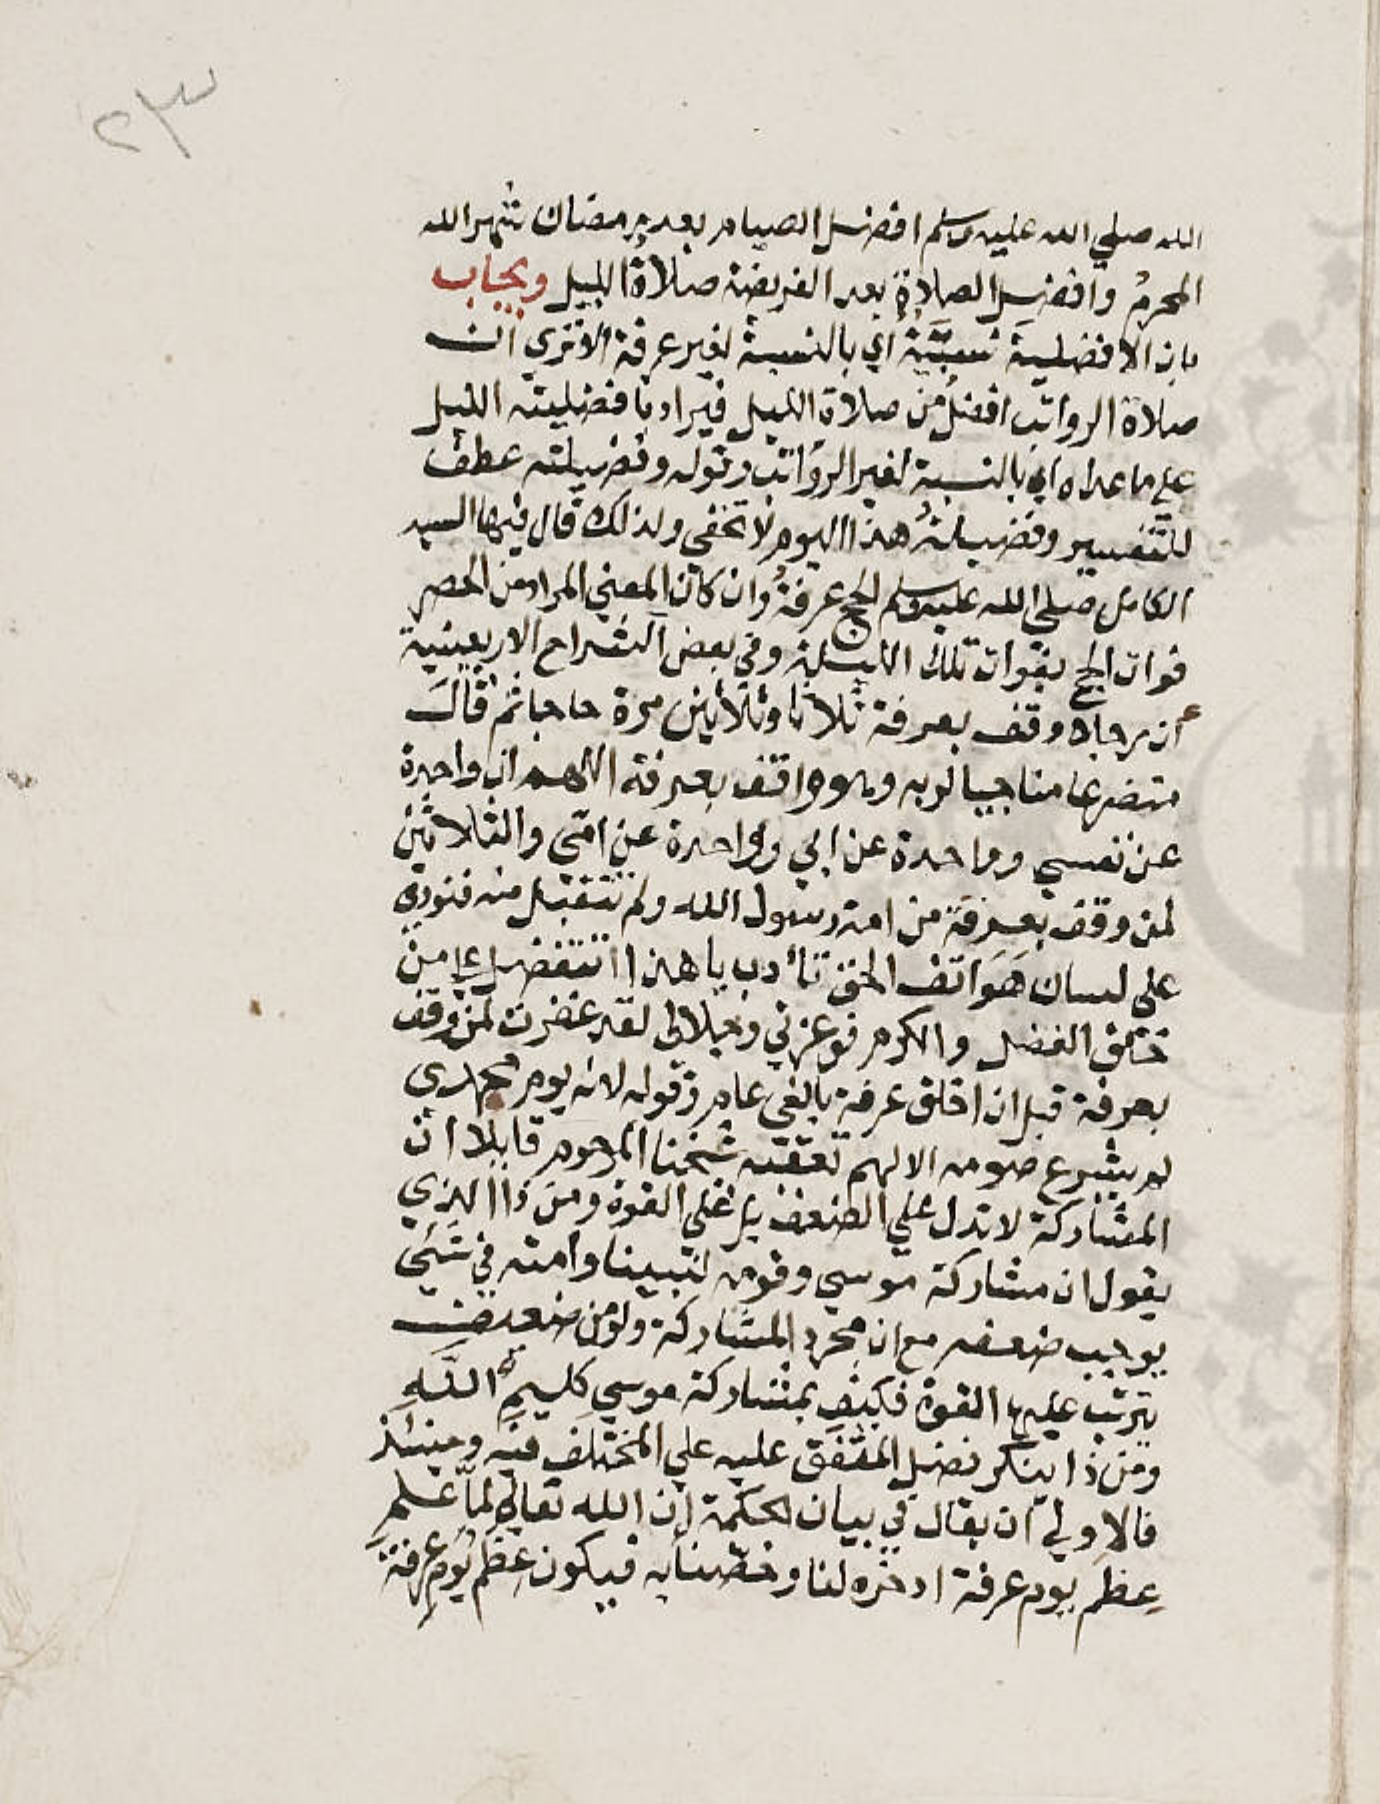 ٢٣
الله صلي الله عليه وسلم افضل الصيام بعد رمضان شهر الله
المحرم وافضل الصلاة بعد الفريضة صلاة الليل ويجاب
بان الافضلية نسبية اي بالنسبة لغير عرفة الا تري ان
صلاة الرواتب افضل من صلاة الليل فيراد بافضليته الليل
علي ما عداه اي بالنسبة لغير الرواتب وقوله وفضيلته عطف
للتفسير وفضيلة هذا اليوم لا تخفي ولذلك قال فيها السيد
الكامل صلي الله عليه وسلم الحج عرفة وان كان المعني المراد من الحصر
فوات الحج بفوات تلك الليلة وفي بعض الشراح الاربعينية
ان رجلا وقف بعرفة ثلاثا وثلاثين مرة حاجا ثم قال
متضرعا مناجيا لربه وهو واقف بعرفة اللهم ان واحدة
عن نفسي وواحدة عن ابي وواحدة عن امي والثلاثين
لمن وقف بعرفة من امة رسول الله ولم تتقبل منه فنودي
علي لسان هواتف الحق تأدب يا هذا اتتفضل علي من
خلق الفضل والكرم فوعزتي وجلالي لقد غفرت لمن وقف
بعرفة قبل ان اخلق عرفة بالفي عام وقوله لانه يوم محمدي
لم يشرع صومه الا لهم تعقبه شيخنا المرحوم قايلا ان
المشاركة لا تدل علي الضعف بل علي القوة ومن ذا الذي
يقول ان مشاركة موسي وقومه لنبينا وامته في شيء
يوجب ضعفه مع ان مجرد المشاركة ولو من ضعيف
يترتب عليها القوة فكيف بمشاركة موسي كليم الله
ومن ذا ينكر فضل المتفق عليه علي المختلف فيه وحينئذ
فالاولي ان يقال في بيان الحكمة ان الله تعالي لما علم
عظم يوم عرفة ادخره لنا وخصنا به فيكون عظم يوم عرفة